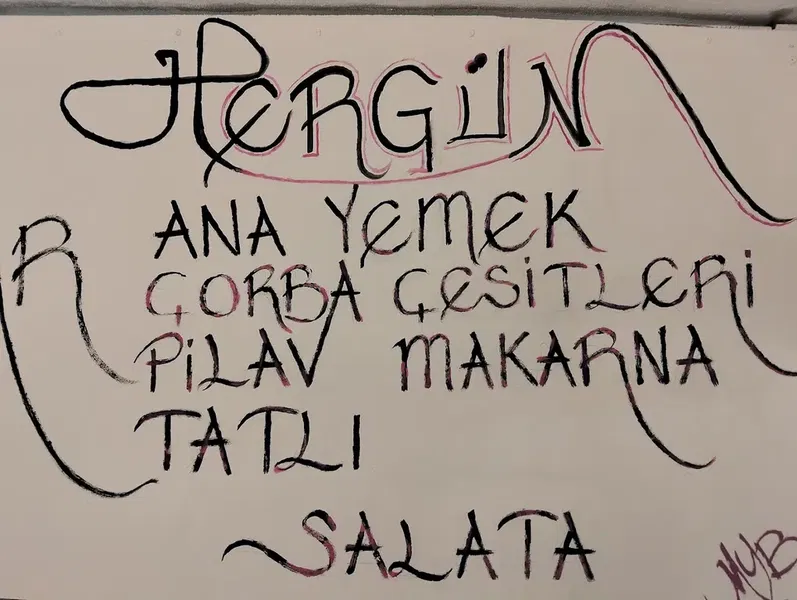 HERGÜN
R
ANA YEMEK
ÇORBA ÇEŞİTLERİ
PİLAV MAKARNA
TATLI
SALATA
MYB